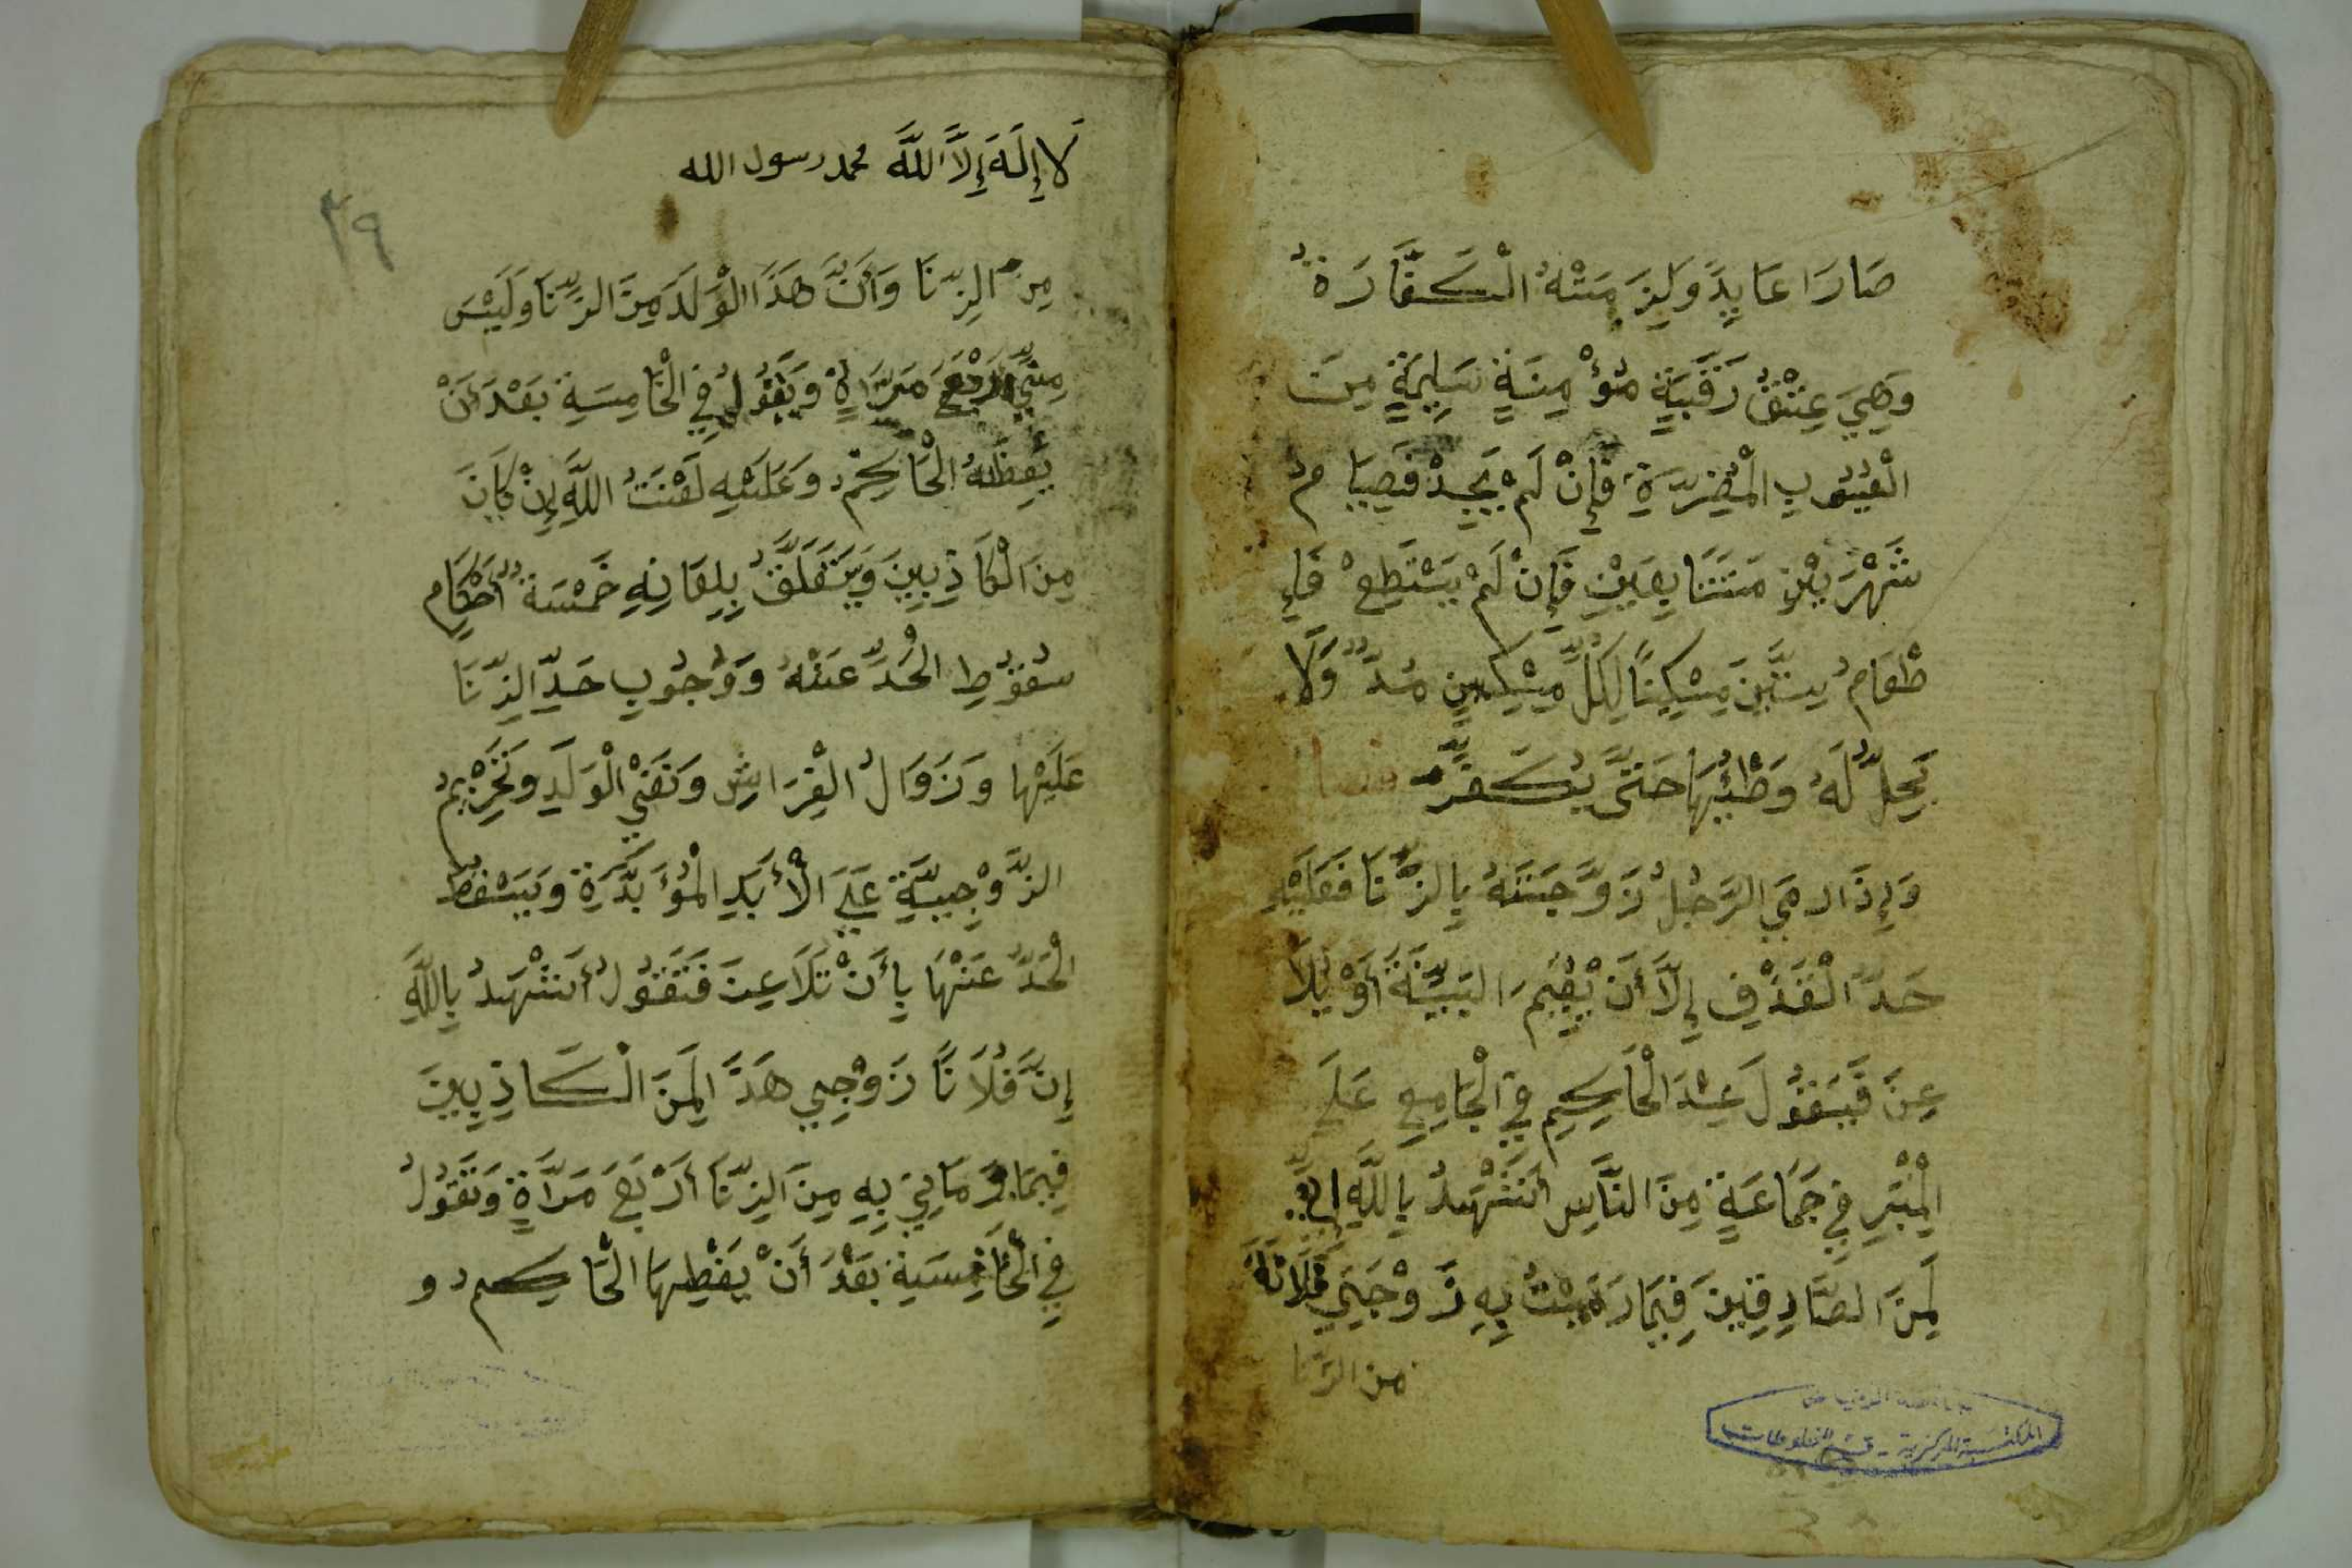 صَارَا عَايِدً وَلَزِمَتْهُ الْكَفَّارَةُ
وَهِيَ عِتْقُ رَقَبَةٍ مُؤْمِنَةٍ سَلِيمَةٍ مِنَ
الْعُيُوبِ الْمُضِرَّةِ فَإِنْ لَمْ يَجِدْ فَصِيَامُ
شَهْرَيْنِ مُتَتَابِعَيْنِ فَإِنْ لَمْ يَسْتَطِعْ فَإِ
طْعَامُ سِتِّينَ مِسْكِينًا لِكُلِّ مِسْكِينٍ مُدٌّ وَلَا
يَحِلُّ لَهُ وَطْئُهَا حَتَّى يُكَفِّرَ فصل
وَإِذَا رمَي الرَّجُلُ زَوْجَتَهُ بِالزِّنَا فَعَلَيْهِ
حَدُّ الْقَذْفِ إِلَّا أَنْ يُقِيمَ الْبَيِّنَةَ أَوْ يُلَا
عِنَ فَيَقُولَ عِنْدَ الْحَاكِمِ فِي الْجَامِعِ عَلَى
الْمِنْبَرِ فِي جَمَاعَةٍ مِنَ النَّاسِ أَشْهَدُ بِاللَّهِ إِنِّي
لَمِنَ الصَّادِقِينَ فِيمَا رَمَيْتُ بِهِ زَوْجَتِي فُلَانَةَ
من الزنا
المكتبة المركزية - قسم المخطوطات
لَا إِلَهَ إِلَّا اللَّه محمد رسول الله
٣٩
مِنَ الزِّنَا وَأَنَّ هَذَا الْوَلَدَ مِنَ الزِّنَا وَلَيْسَ
مِنِّي أَرْبَعَ مَرَّاةٍ وَيَقُولُ فِي الْخَامِسَةِ بَعْدَ أَنْ
يَعِظَهُ الْحَاكِمُ وَعَلَيْهِ لَعْنَتُ اللَّهِ إِنْ كَانَ
مِنَ الْكَاذِبِينَ وَيَتَعَلَّقُ بِلِعَانِهِ خَمْسَةُ أَحْكَامٍ
سُقُوطِ الْحَدِّ عَنْهُ وَوُجُوبِ حَدِّ الزِّنَا
عَلَيْهَا وَزَوَالُ الْفِرَاشِ وَنَفْيُ الْوَلَدِ وَتَحْرِيمُ
الزَّوْجِيَّةِ عَلَى الْأَبَدِ الْمُؤَبَّدَةِ وَيَسْقُطُ
الْحَدُّ عَنْهَا بِأَنْ تُلَاعِنَ فَتَقُولُ أَشْهَدُ بِاللَّهِ
إِنَّ فُلَانًا زَوْجِي هَذَا لَمِنَ الْكَاذِبِينَ
فِيمَا رَمَانِي بِهِ مِنَ الزِّنَا أَرْبَعَ مَرَّاةٍ وَتَقُولُ
فِي الْخَامِسَةِ بَعْدَ أَنْ يَعْظِهَا الْحَاكِمُ و